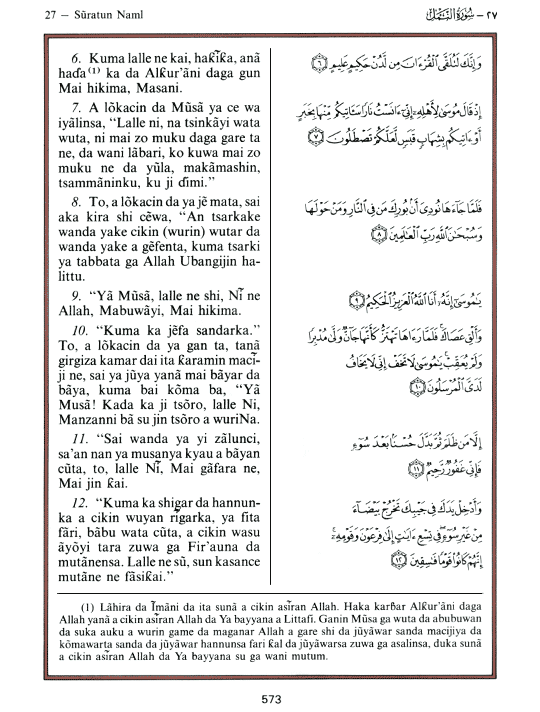 27 — Sūratun Naml
٢٧ — سُورَةُ النَّمْلِ
6. Kuma lalle ne kai, haƙĩƙa, anã
haɗa(1) ka da Alƙur'ãni daga gun
Mai hikima, Masani.
7. A lõkacin da Mũsã ya ce wa
iyãlinsa, "Lalle ni, na tsinkãyi wata
wuta, ni mai zo muku daga gare ta
ne, da wani lãbari, ko kuwa mai zo
muku ne da yũla, makãmashin,
tsammãninku, ku ji ɗimi."
8. To, a lõkacin da ya jẽ mata, sai
aka kira shi cẽwa, "An tsarkake
wanda yake cikin (wurin) wutar da
wanda yake a gẽfenta, kuma tsarki
ya tabbata ga Allah Ubangijin ha-
littu.
9. "Yã Mũsã, lalle ne shi, Nĩ ne
Allah, Mabuwãyi, Mai hikima.
10. "Kuma ka jẽfa sandarka."
To, a lõkacin da ya gan ta, tanã
girgiza kamar dai ita ƙaramin macĩ-
ji ne, sai ya jũya yanã mai bãyar da
bãya, kuma bai kõma ba, "Yã
Musã! Kada ka ji tsõro, lalle Ni,
Manzanni bã su jin tsõro a wuriNa.
11. "Sai wanda ya yi zãlunci,
sa'an nan ya musanya kyau a bãyan
cũta, to, lalle Nĩ, Mai gãfara ne,
Mai jin ƙai.
12. "Kuma ka shigar da hannun-
ka a cikin wuyan rĩgarka, ya fita
fãri, bãbu wata cũta, a cikin wasu
ãyõyi tara zuwa ga Fir'auna da
mutãnensa. Lalle ne sũ, sun kasance
mutãne ne fãsiƙai."
وَإِنَّكَ لَتُلَقَّى ٱلْقُرْءَانَ مِن لَّدُنْ حَكِيمٍ عَلِيمٍ ﴿٦﴾
إِذْ قَالَ مُوسَىٰ لِأَهْلِهِۦٓ إِنِّىٓ ءَانَسْتُ نَارًا سَـَٔاتِيكُم مِّنْهَا بِخَبَرٍ
أَوْ ءَاتِيكُم بِشِهَابٍ قَبَسٍ لَّعَلَّكُمْ تَصْطَلُونَ ﴿٧﴾
فَلَمَّا جَآءَهَا نُودِىَ أَنۢ بُورِكَ مَن فِى ٱلنَّارِ وَمَنْ حَوْلَهَا
وَسُبْحَٰنَ ٱللَّهِ رَبِّ ٱلْعَٰلَمِينَ ﴿٨﴾
يَٰمُوسَىٰٓ إِنَّهُۥٓ أَنَا ٱللَّهُ ٱلْعَزِيزُ ٱلْحَكِيمُ ﴿٩﴾
وَأَلْقِ عَصَاكَ فَلَمَّا رَءَاهَا تَهْتَزُّ كَأَنَّهَا جَآنٌّ وَلَّىٰ مُدْبِرًا
وَلَمْ يُعَقِّبْ يَٰمُوسَىٰ لَا تَخَفْ إِنِّى لَا يَخَافُ
لَدَىَّ ٱلْمُرْسَلُونَ ﴿١٠﴾
إِلَّا مَن ظَلَمَ ثُمَّ بَدَّلَ حُسْنًۢا بَعْدَ سُوٓءٍ
فَإِنِّى غَفُورٌ رَّحِيمٌ ﴿١١﴾
وَأَدْخِلْ يَدَكَ فِى جَيْبِكَ تَخْرُجْ بَيْضَآءَ
مِنْ غَيْرِ سُوٓءٍ فِى تِسْعِ ءَايَٰتٍ إِلَىٰ فِرْعَوْنَ وَقَوْمِهِۦٓ
إِنَّهُمْ كَانُوا۟ قَوْمًا فَٰسِقِينَ ﴿١٢﴾
(1) Lãhira da ĩmãni da ita sunã a cikin asĩran Allah. Haka karɓar Alƙur'ãni daga
Allah yanã a cikin asĩran Allah da Ya bayyana a Littafi. Ganin Mũsa ga wuta da abubuwan
da suka auku a wurin game da maganar Allah a gare shi da jũyãwar sanda macijiya da
kõmawarta sanda da jũyãwar hannunsa fari ƙal da jũyãwarsa zuwa ga asalinsa, duka sunã
a cikin asĩran Allah da Ya bayyana su ga wani mutum.
573